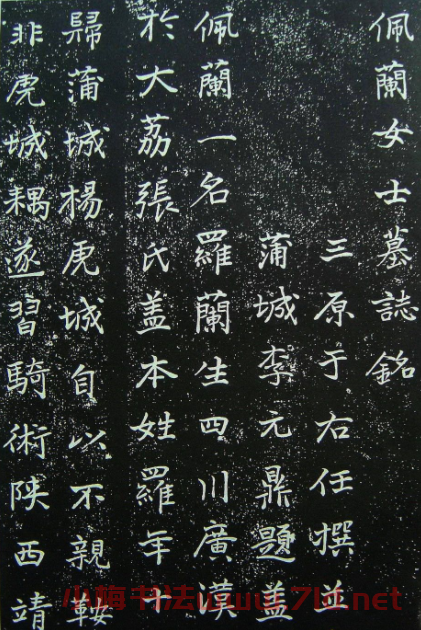 佩蘭女士墓誌銘
三原于右任撰並
蒲城李元鼎題盖
佩蘭一名羅蘭生四川廣漢
於大荔張氏盖本姓羅年十
歸蒲城楊虎城自以不親鞍
非虎城耦遂習騎術陝西靖
小梅书法